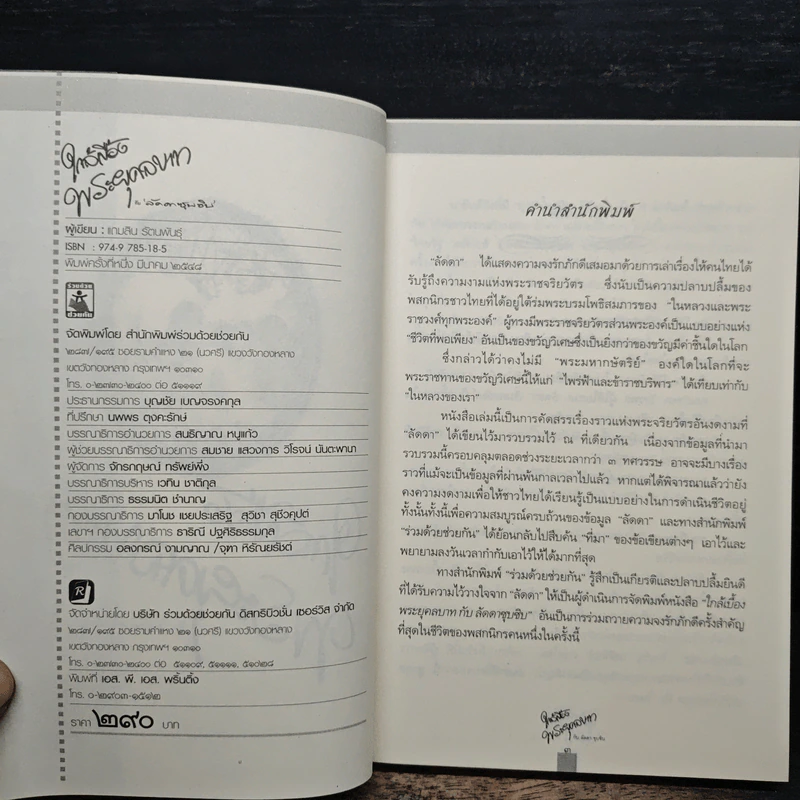 ใกล้เบื้อง
พระยุคลบาท
กับ "ลัดดาซุบซิบ"
ผู้เขียน : แถมสิน รัตนพันธุ์
ISBN : 974-9 785-18-5
พิมพ์ครั้งที่หนึ่ง มีนาคม ๒๕๔๘
ร่วมด้วย
ช่วยกัน
จัดพิมพ์โดย สำนักพิมพ์ร่วมด้วยช่วยกัน
๒๘๗/๑๙๕ ซอยรามคำแหง ๒๑ (นวศรี) แขวงวังทองหลาง
เขตวังทองหลาง กรุงเทพฯ ๑๐๓๑๐
โทร. ๐-๒๗๓๐-๒๔๐๐ ต่อ ๕๑๑๑๙
ประธานกรรมการ บุญชัย เบญจรงคกุล
ที่ปรึกษา นพพร ตุงคะรักษ์
บรรณาธิการอำนวยการ สนธิญาณ หนูแก้ว
ผู้ช่วยบรรณาธิการอำนวยการ สมชาย แสวงการ วิโรจน์ นันตะพานา
ผู้จัดการ จักรกฤษณ์ ทรัพย์พึ่ง
บรรณาธิการบริหาร เวทิน ชาติกุล
บรรณาธิการ ธรรมนิต ชำนาญ
กองบรรณาธิการ มาโนช แซยประเสริฐ สุวิชา สุชีวคุปต์
เลขาฯ กองบรรณาธิการ ธาริณี ปฐศิริธรรมกุล
ศิลปกรรม อลงกรณ์ งามญาณ /จุฑา หิรัณยรัชต์
R
จัดจำหน่ายโดย บริษัท ร่วมด้วยช่วยกัน ดิสทริบิวชั่น เซอร์วิส จำกัด
๒๘๗/๑๙๕ ซอยรามคำแหง ๒๑ (นวศรี) แขวงวังทองหลาง
เขตวังทองหลาง กรุงเทพฯ ๑๐๓๑๐
โทร. ๐-๒๗๓๐-๒๔๐๐ ต่อ ๕๑๑๐๙, ๕๑๑๑๑, ๕๑๐๒๘
พิมพ์ที่ เอส. พี. เอส. พริ้นติ้ง
โทร. ๐-๒๙๐๓-๑๕๑๒
ราคา ๒๙๐ บาท
คำนำสำนักพิมพ์
"ลัดดา" ได้แสดงความจงรักภักดีเสมอมาด้วยการเล่าเรื่องให้คนไทยได้
รับรู้ถึงความงามแห่งพระราชจริยวัตร ซึ่งนับเป็นความปลาบปลื้มของ
พสกนิกรชาวไทยที่ได้อยู่ใต้ร่มพระบรมโพธิสมภารของ "ในหลวงและพระ
ราชวงศ์ทุกพระองค์" ผู้ทรงมีพระราชจริยวัตรส่วนพระองค์เป็นแบบอย่างแห่ง
"ชีวิตที่พอเพียง" อันเป็นของขวัญวิเศษซึ่งเป็นยิ่งกว่าของขวัญมีค่าชิ้นใดในโลก
ซึ่งกล่าวได้ว่าคงไม่มี "พระมหากษัตริย์" องค์ใดในโลกที่จะ
พระราชทานของขวัญวิเศษนี้ให้แก่ "ไพร่ฟ้าและข้าราชบริพาร" ได้เทียบเท่ากับ
"ในหลวงของเรา"
หนังสือเล่มนี้เป็นการคัดสรรเรื่องราวแห่งพระจริยวัตรอันงดงามที่
"ลัดดา" ได้เขียนไว้มารวบรวมไว้ ณ ที่เดียวกัน เนื่องจากข้อมูลที่นำมา
รวบรวมนี้ครอบคลุมตลอดช่วงระยะเวลากว่า ๓ ทศวรรษ อาจจะมีบางเรื่อง
ราวที่แม้จะเป็นข้อมูลที่ผ่านพ้นกาลเวลาไปแล้ว หากแต่ได้พิจารณาแล้วว่ายัง
คงความงดงามเพื่อให้ชาวไทยได้เรียนรู้เป็นแบบอย่างในการดำเนินชีวิตอยู่
ทั้งนั้นทั้งนี้เพื่อความสมบูรณ์ครบถ้วนของข้อมูล "ลัดดา" และทางสำนักพิมพ์
"ร่วมด้วยช่วยกัน" ได้ย้อนกลับไปสืบค้น "ที่มา" ของข้อเขียนต่างๆ เอาไว้และ
พยายามลงวันเวลากำกับเอาไว้ให้ได้มากที่สุด
ทางสำนักพิมพ์ "ร่วมด้วยช่วยกัน" รู้สึกเป็นเกียรติและปลาบปลื้มยินดี
ที่ได้รับความไว้วางใจจาก "ลัดดา" ให้เป็นผู้ดำเนินการจัดพิมพ์หนังสือ "ใกล้เบื้อง
พระยุคลบาท กับ ลัดดาซุบซิบ" อันเป็นการร่วมถวายความจงรักภักดีครั้งสำคัญ
ที่สุดในชีวิตของพสกนิกรคนหนึ่งในครั้งนี้
ใกล้เบื้อง
พระยุคลบาท
กับ ลัดดาซุบซิบ
๓